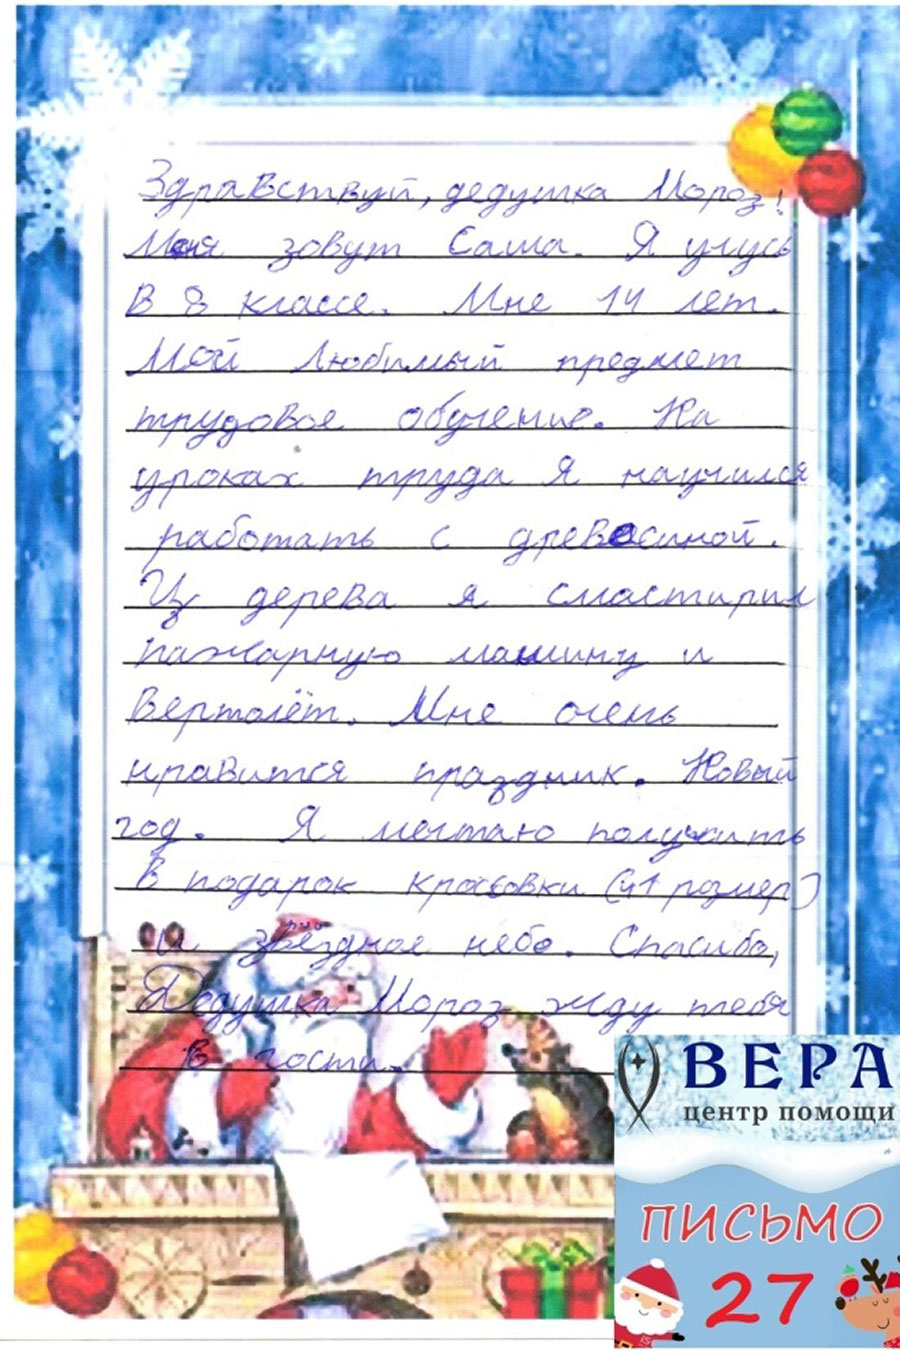 Здравствуй, дедушка Мороз!
Меня зовут Саша. Я учусь
в 8 классе. Мне 14 лет.
Мой Любимый предмет
трудовое обучение. На
уроках труда я научился
работать с древесиной.
Из дерева я смастирил
пажарную машину и
вертолёт. Мне очень
нравится праздник. Новый
год. Я мечтаю получить
в подарок кроссовки (41 розмер)
и звёздное небо. Спасибо,
Дедушка Мороз жду тебя
в гости.
ВЕРА
центр помощи
ПИСЬМО
27